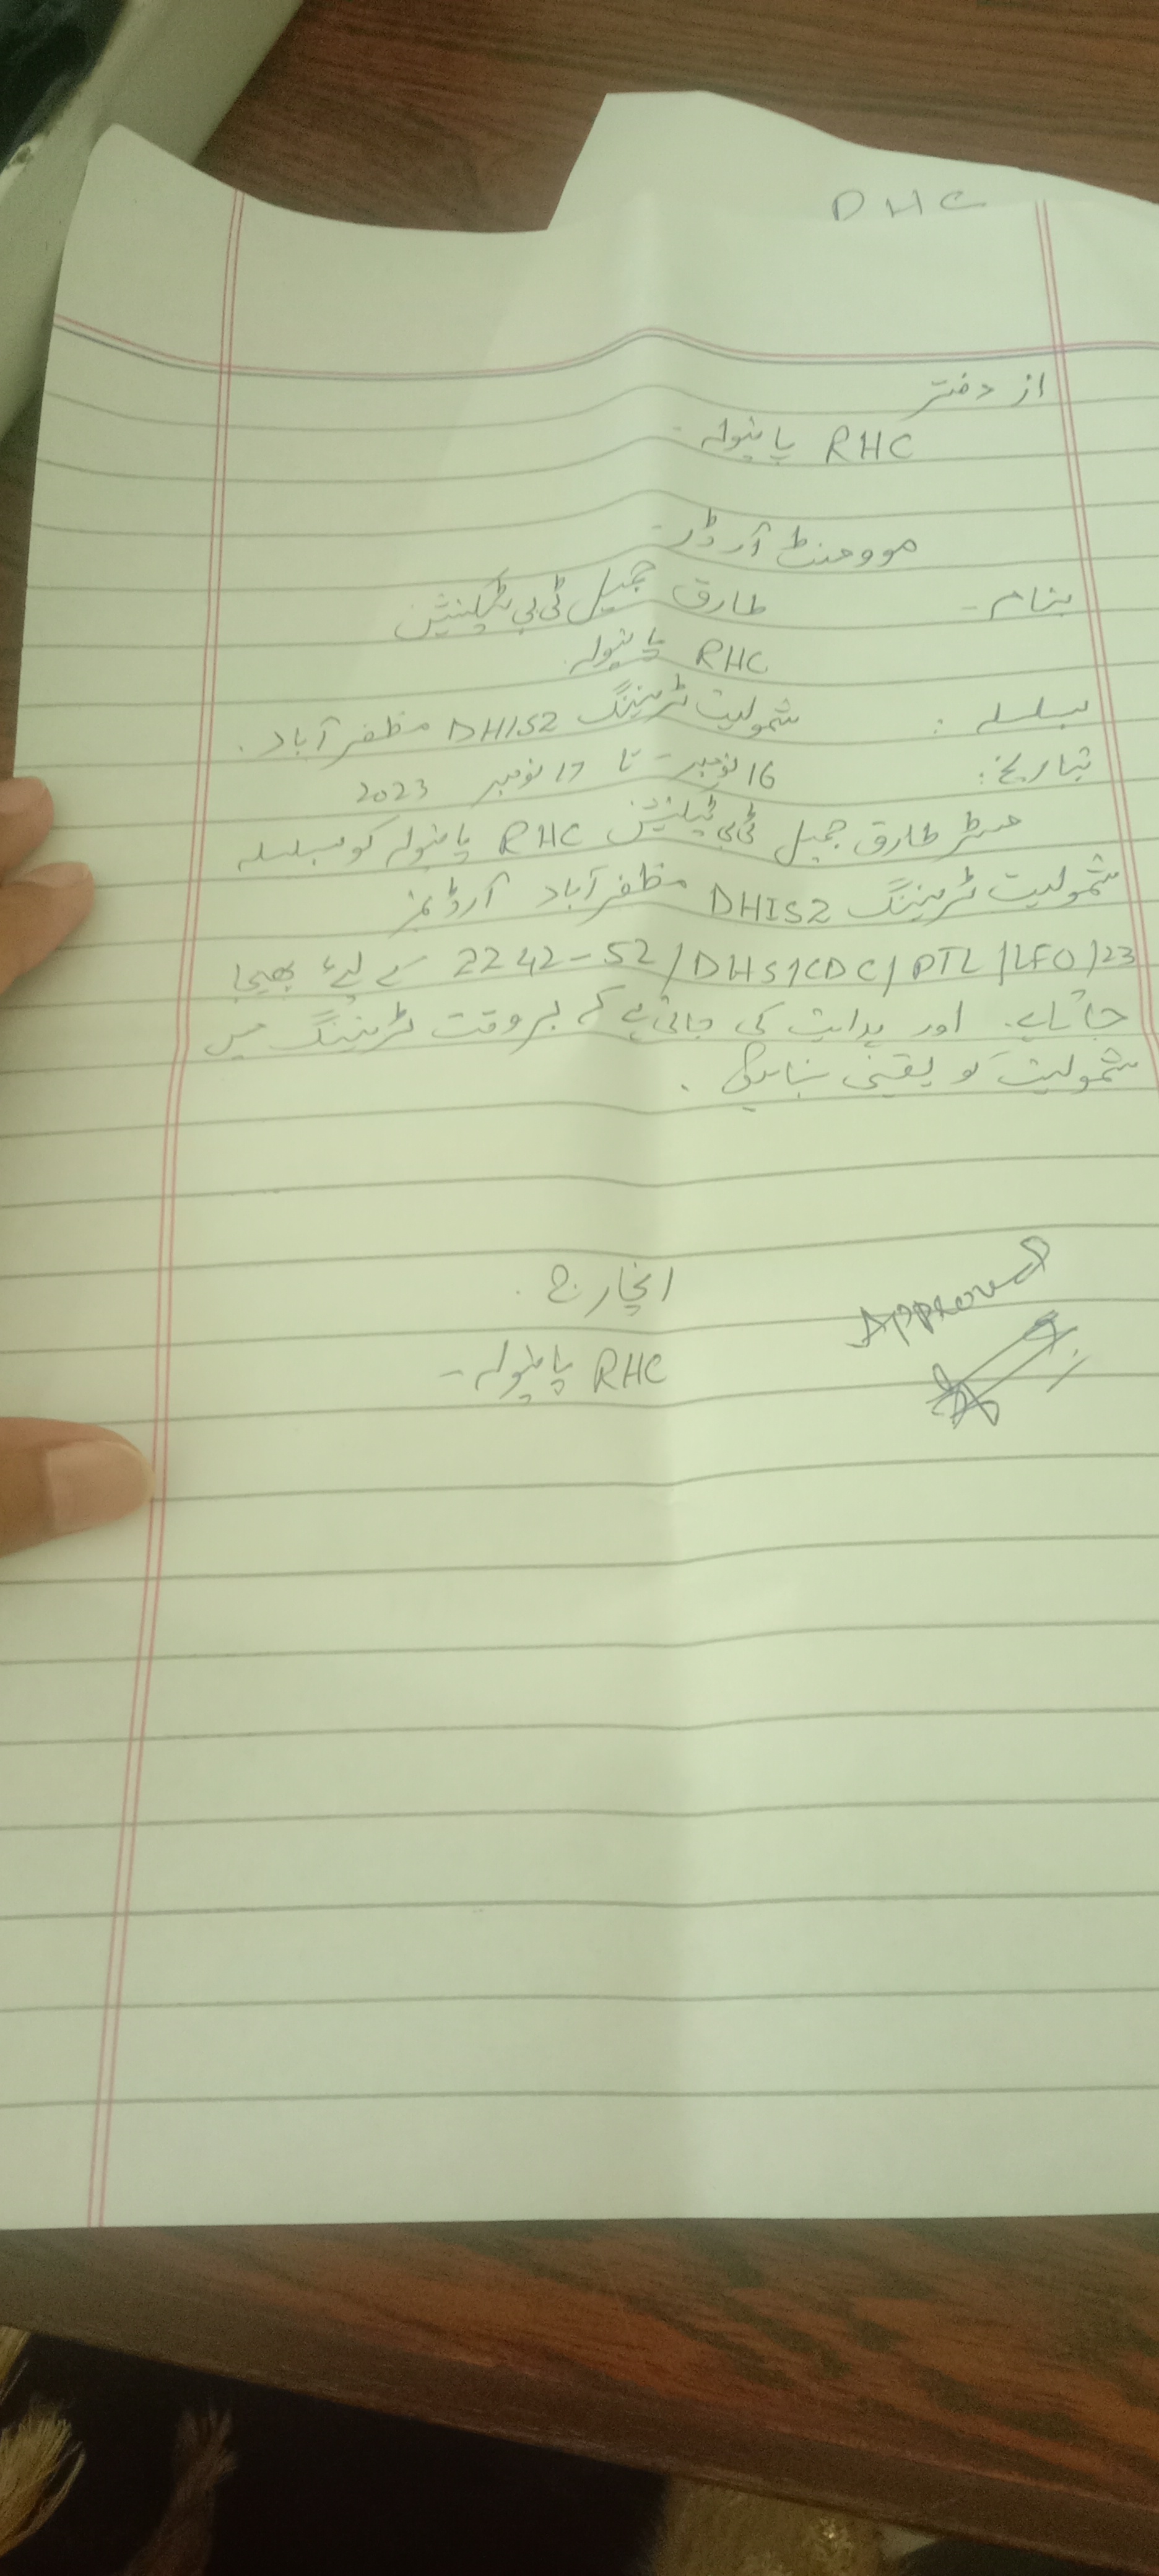 DHC
از دفتر
RHC پاچیوٹ۔
موومنٹ آرڈر۔
بنام۔ طارق جمیل ٹی بی ٹیکنیشن
RHC
بسلسلہ : شمولیت ٹریننگ DHIS2 مظفرآباد.
بتاریخ: 16 نومبر تا 17 نومبر 2023
مسٹر طارق جمیل ٹی بی ٹیکنیشن RHC کو بسلسلہ
شمولیت ٹریننگ DHIS2 مظفرآباد آرڈر نمبر
2242-52/DHS/CDC/PTL/LFO/23 کے لیے بھیجا
جاتا ہے. اور ہدایت کی جاتی ہے کہ بروقت ٹریننگ میں
شمولیت کو یقینی بنائیں.
Approved
انچارج.
RHC